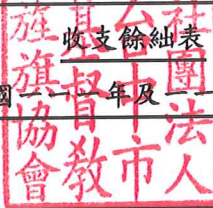 收支餘絀表
國一一一年及一一
社團法人
台中市
基督教
旌旗協會